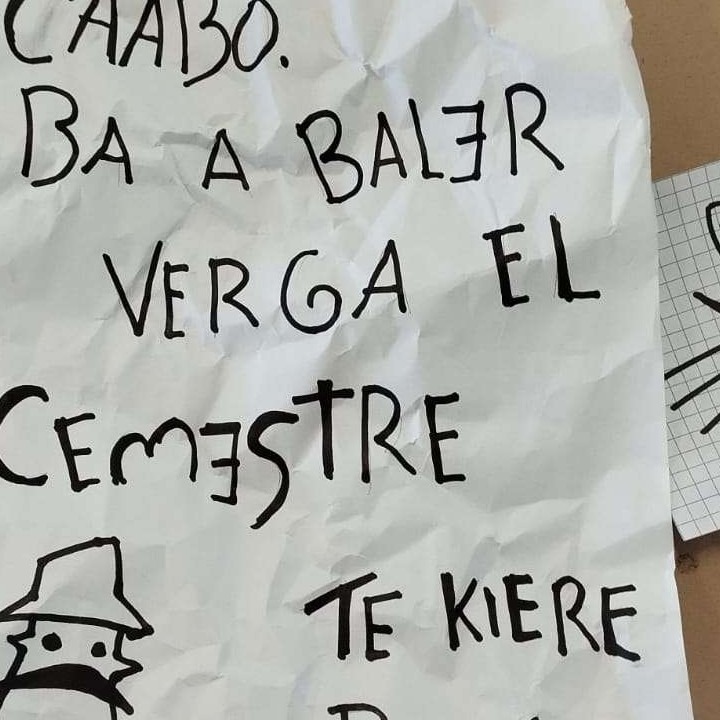 CAABO.
BA A BALER
VERGA EL
CEMESTRE
TE KIERE